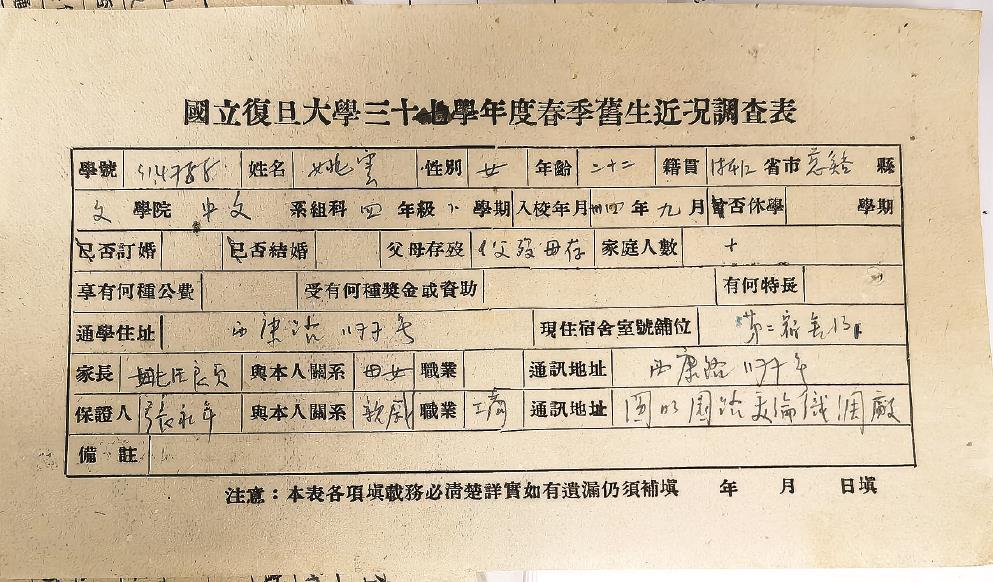 國立復旦大學三十七學年度春季舊生近況調查表
學號 姓名 姚雲 性別 女 年齡 二十二 籍貫 浙江 省市 慈谿 縣
文 學院 中文 系組科 四 年級 下 學期 入校年月 卅四 年 九 月 曾否休學 學期
已否訂婚 已否結婚 父母存歿 父歿母存 家庭人數 十
享有何種公費 受有何種獎金或資助 有何特長
通學住址 西康路 號 現住宿舍室號舖位 第二宿舍
家長 姚汪良貞 與本人關系 母女 職業 通訊地址 西康路 號
保證人 張永年 與本人關系 親戚 職業 工商 通訊地址 圓明園路美倫織綢廠
備註
注意：本表各項填載務必清楚詳實如有遺漏仍須補填 年 月 日填